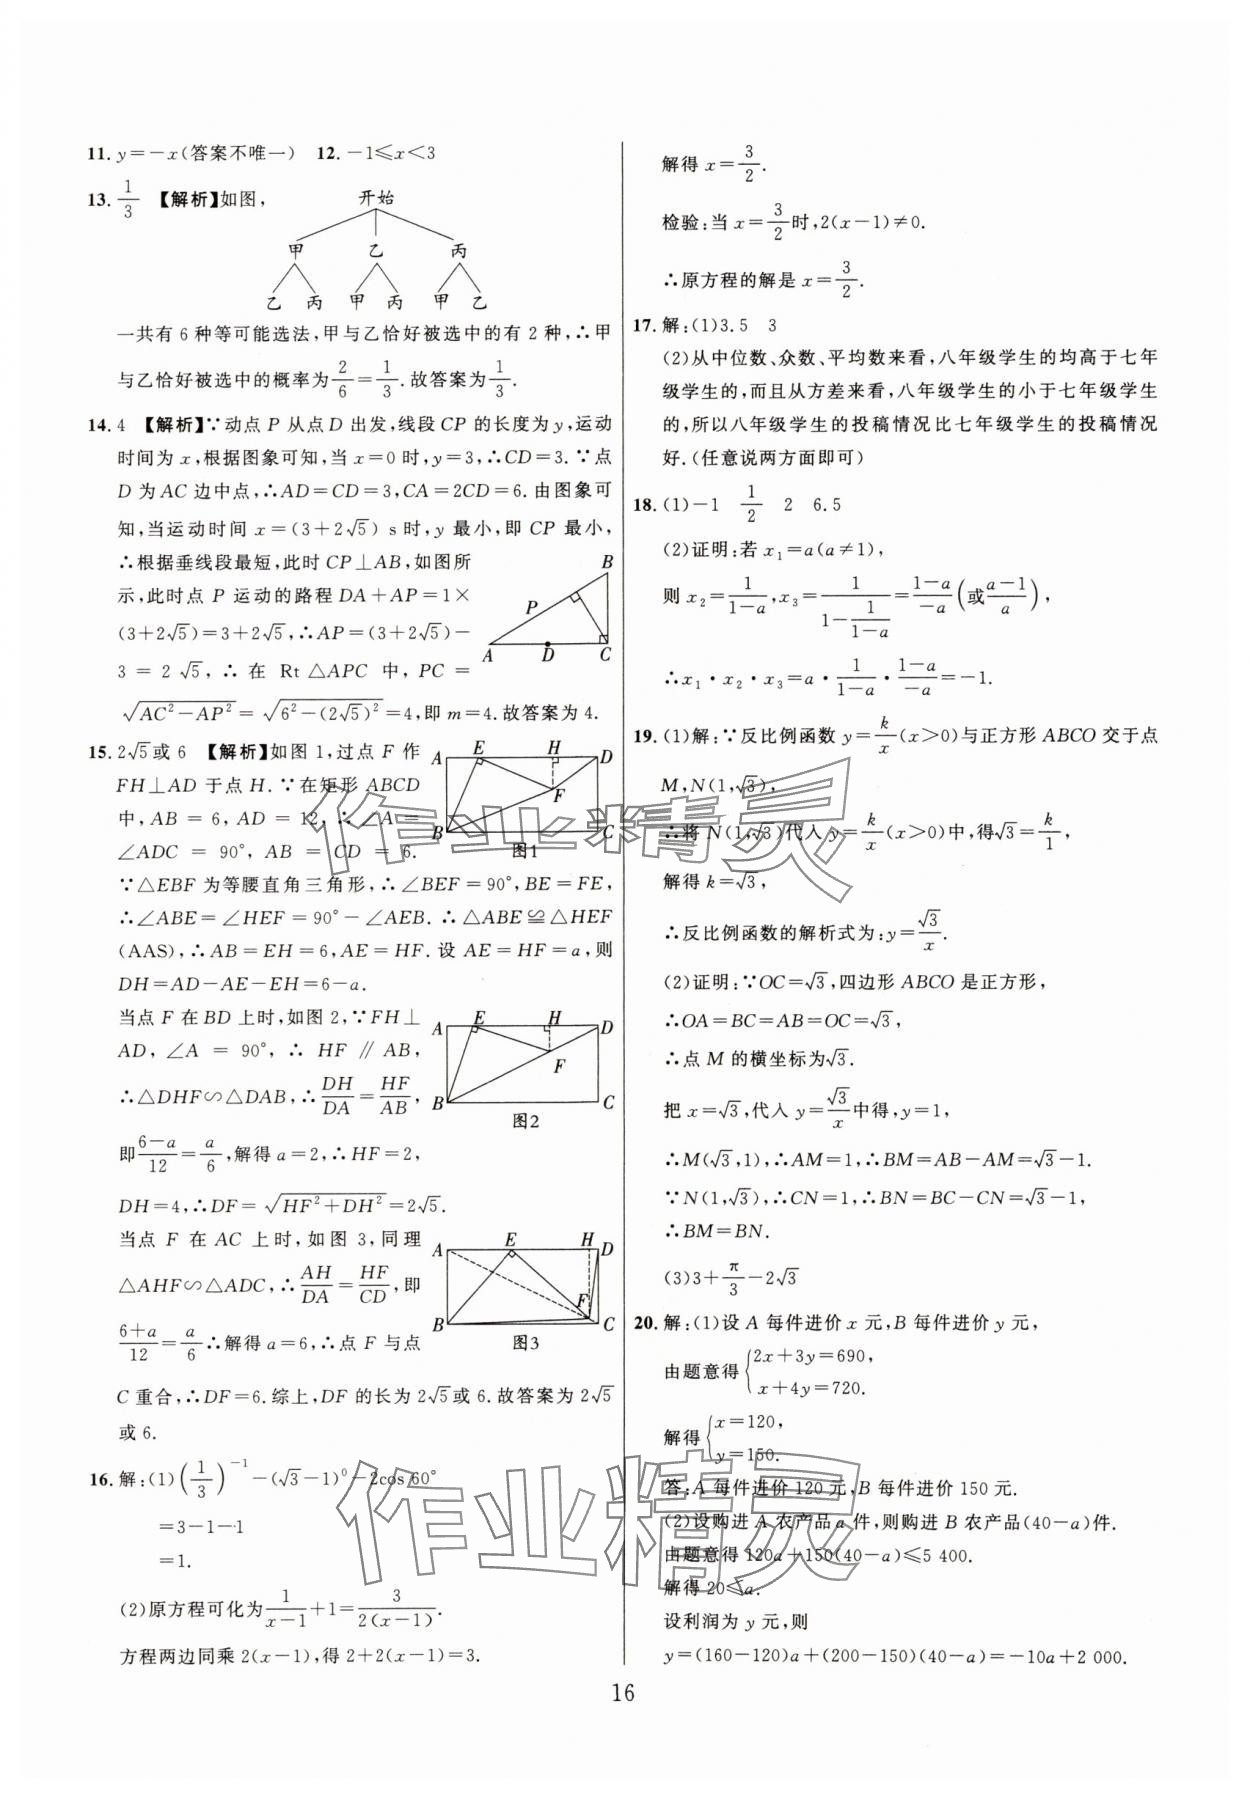 11. y=－x(答案不唯一)　12. －1≤x＜3
13. 1/3 【解析】如图,
开始
甲 乙 丙
乙 丙 甲 丙 甲 乙
一共有 6 种等可能选法,甲与乙恰好被选中的有 2 种,∴甲
与乙恰好被选中的概率为2/6=1/3.故答案为1/3.
14. 4 【解析】∵动点 P 从点 D 出发,线段 CP 的长度为 y,运动
时间为 x,根据图象可知,当 x=0 时,y=3,∴CD=3.∵点
D 为 AC 边中点,∴AD=CD=3,CA=2CD=6.由图象可
知,当运动时间 x=(3+2√5) s 时,y 最小,即 CP 最小,
∴根据垂线段最短,此时 CP⊥AB,如图所
示,此时点 P 运动的路程DA+AP=1×
(3+2√5)=3+2√5,∴AP=(3+2√5)－
3=2√5,∴在 Rt△APC 中,PC=
√(AC²－AP²)=√(6²－(2√5)²)=4,即 m=4.故答案为 4.
B
P
A D C
15. 2√5或 6 【解析】如图 1,过点 F 作
FH⊥AD 于点 H.∵在矩形 ABCD
中,AB=6,AD=12,∴∠A=
∠ADC=90°,AB=CD=6.
A E H D
F
B C
图1
∵△EBF 为等腰直角三角形,∴∠BEF=90°,BE=FE,
∴∠ABE=∠HEF=90°－∠AEB.∴△ABE≌△HEF
(AAS),∴AB=EH=6,AE=HF.设 AE=HF=a,则
DH=AD－AE－EH=6－a.
当点 F 在 BD 上时,如图 2,∵FH⊥
AD,∠A=90°,∴HF∥AB,
∴△DHF∽△DAB,∴DH/DA=HF/AB,
即(6－a)/12=a/6,解得 a=2,∴HF=2,
DH=4,∴DF=√(HF²+DH²)=2√5.
A E H D
F
B C
图2
当点 F 在 AC 上时,如图 3,同理
△AHF∽△ADC,∴AH/DA=HF/CD,即
(6+a)/12=a/6∴解得 a=6,∴点 F 与点
A E H D
F
B C
图3
C 重合,∴DF=6.综上,DF 的长为 2√5或 6.故答案为 2√5
或 6.
16. 解:(1)(1/3)⁻¹－(√3－1)⁰－2cos 60°
=3－1－1
=1.
(2)原方程可化为1/(x－1)+1=3/(2(x－1)).
方程两边同乘 2(x－1),得 2+2(x－1)=3.
解得 x=3/2.
检验:当 x=3/2时,2(x－1)≠0.
∴原方程的解是 x=3/2.
17. 解:(1)3.5　3
(2)从中位数、众数、平均数来看,八年级学生的均高于七年
级学生的,而且从方差来看,八年级学生的小于七年级学生
的,所以八年级学生的投稿情况比七年级学生的投稿情况
好.(任意说两方面即可)
18. (1)－1　1/2　2　6.5
(2)证明:若 x₁=a(a≠1),
则 x₂=1/(1－a),x₃=1/(1－1/(1－a))=(1－a)/(－a)(或(a－1)/a),
∴x₁·x₂·x₃=a·1/(1－a)·(1－a)/(－a)=－1.
19. (1)解:∵反比例函数 y=k/x(x>0)与正方形 ABCO 交于点
M,N(1,√3).
∴将 N(1,√3)代入 y=k/x(x>0)中,得√3=k/1,
解得 k=√3,
∴反比例函数的解析式为:y=√3/x.
(2)证明:∵OC=√3,四边形 ABCO 是正方形,
∴OA=BC=AB=OC=√3,
∴点 M 的横坐标为√3.
把 x=√3,代入 y=√3/x中得,y=1,
∴M(√3,1),∴AM=1,∴BM=AB－AM=√3－1.
∵N(1,√3),∴CN=1,∴BN=BC－CN=√3－1,
∴BM=BN.
(3)3+π/3－2√3
20. 解:(1)设 A 每件进价 x 元,B 每件进价 y 元,
由题意得{2x+3y=690,
x+4y=720.
解得{x=120,
y=150.
答:A 每件进价 120 元,B 每件进价 150 元.
(2)设购进 A 农产品 a 件,则购进 B 农产品(40－a)件.
由题意得 120a+150(40－a)≤5 400.
解得 20≤a.
设利润为 y 元,则
y=(160－120)a+(200－150)(40－a)=－10a+2 000.
16
作业精灵
作业精灵